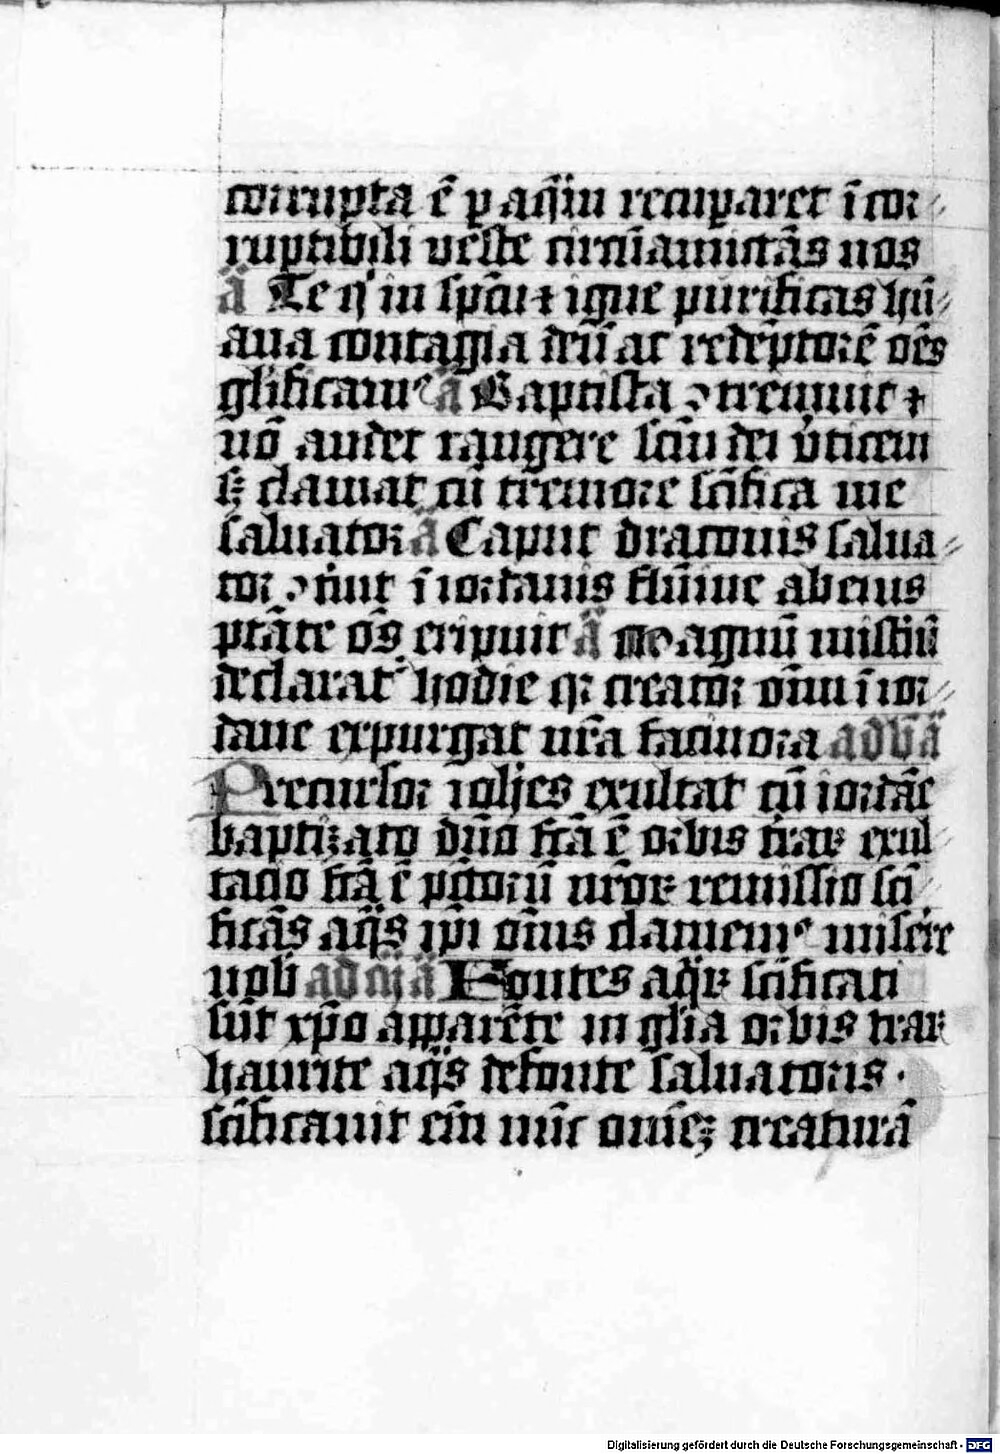 corrupta ē p aq̄m recuꝑaret ī cor⸗
ruptibili veste circūamictās nos
ā Te qͥ in spū ⁊ igne purificas hū⸗
ana contagia deū ac redēptorē oēs
glīficamꝰ ā Baptista ꝯtremuit ⁊
nō audet tangere scm̄ dei v̓ticem
sꝫ clamat cū tremore scīfica me
saluator ā Caput draconis salua⸗
tor ꝯtiuit ī iordanis flūine ab eius
ptāte oēs eripuit ā Magnū mistiū
declaratʳ hodie qꝛ creator oīm ī ior⸗
dane expurgat nr̄a facinora ad bn̄ ā
Precursor iohēs exultat cū iordāe
baptizato dn̄o fcā ē orbis t̓raꝝ exul⸗
tacio fcā ē pctōrū nr̄oꝝ remissio scī⸗
ficās aq̄s ip̄i oīnis clamemꝰ mis̄ere
nob̄ ad mā ā Fontes aq̄ꝝ scīficati
sūt xp̄o apparēte in gl̄ia orbis t̓raꝝ
haurite aq̄s de fonte saluatoris ·
scīficauit em̄ nūc omēꝫ creaturā
Digitalisierung gefördert durch die Deutsche Forschungsgemeinschaft - DFG